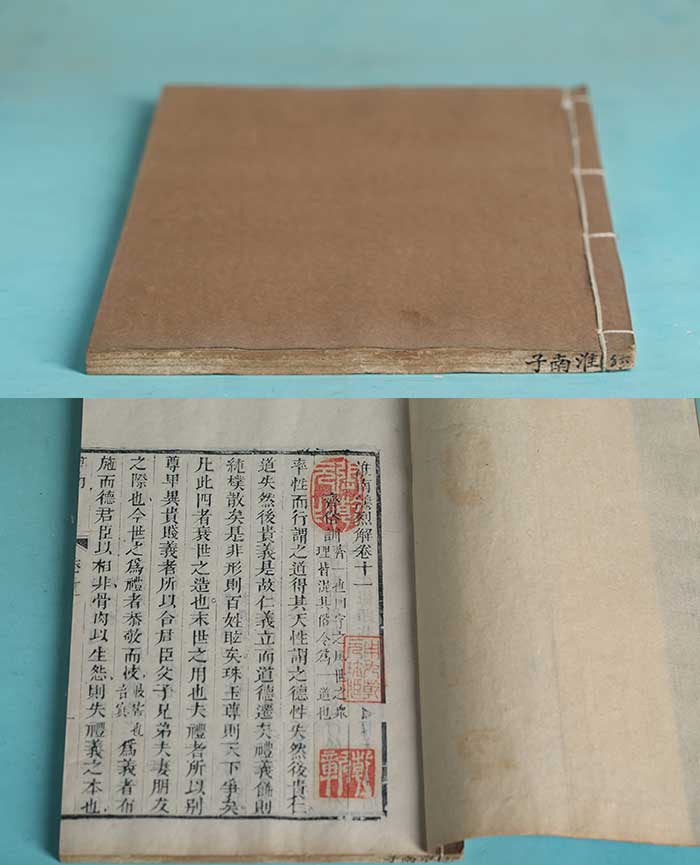 淮南子
淮南鴻烈解卷十一
齊俗訓
齊一也四宇之風世之衆
理皆混其俗令爲一道也
率性而行謂之道得其天性謂之德性失然後貴仁
道失然後貴義是故仁義立而道德遷矣禮義飾則
純樸散矣是非形則百姓眩矣珠玉尊則天下爭矣
凡此四者衰世之造也末世之用也夫禮者所以別
尊卑異貴賤義者所以合君臣父子兄弟夫妻朋友
之際也今世之爲禮者恭敬而忮忮害也爲義者布
施而德君臣以相非骨肉以生怨則失禮義之本也